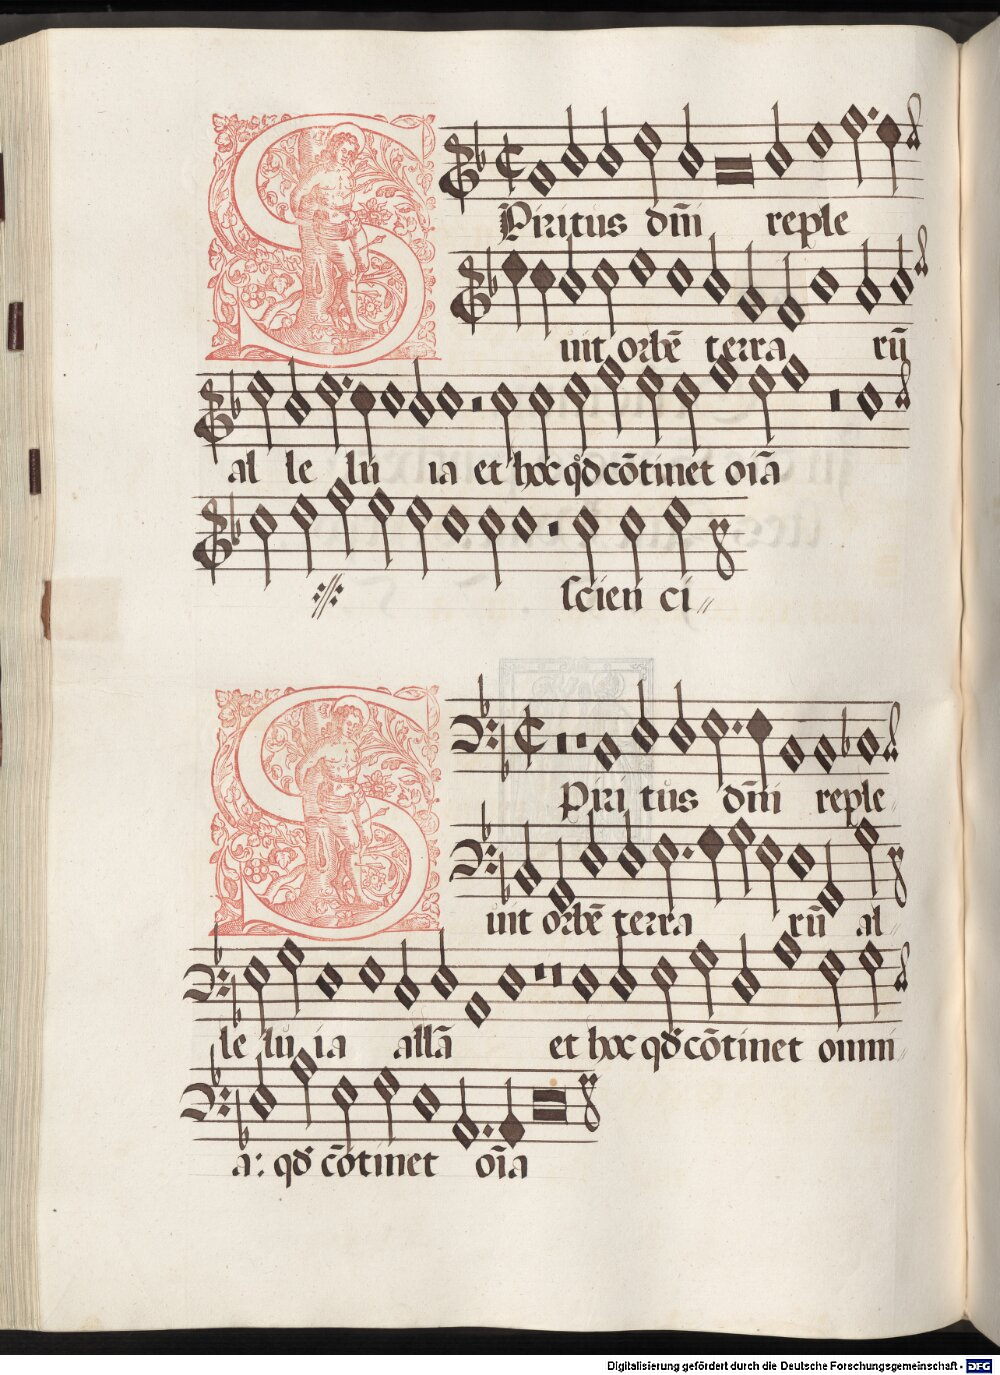 SPiritus dñi reple
uit orbē terra rū
al le lu ia et hoc qd cōtinet oīa
scien ci
SPiri tus dñi reple
uit orbē terra rū al
le lu ia allā et hoc qd cōtinet omni
a: qd cōtinet oīa
Digitalisierung gefördert durch die Deutsche Forschungsgemeinschaft - DFG